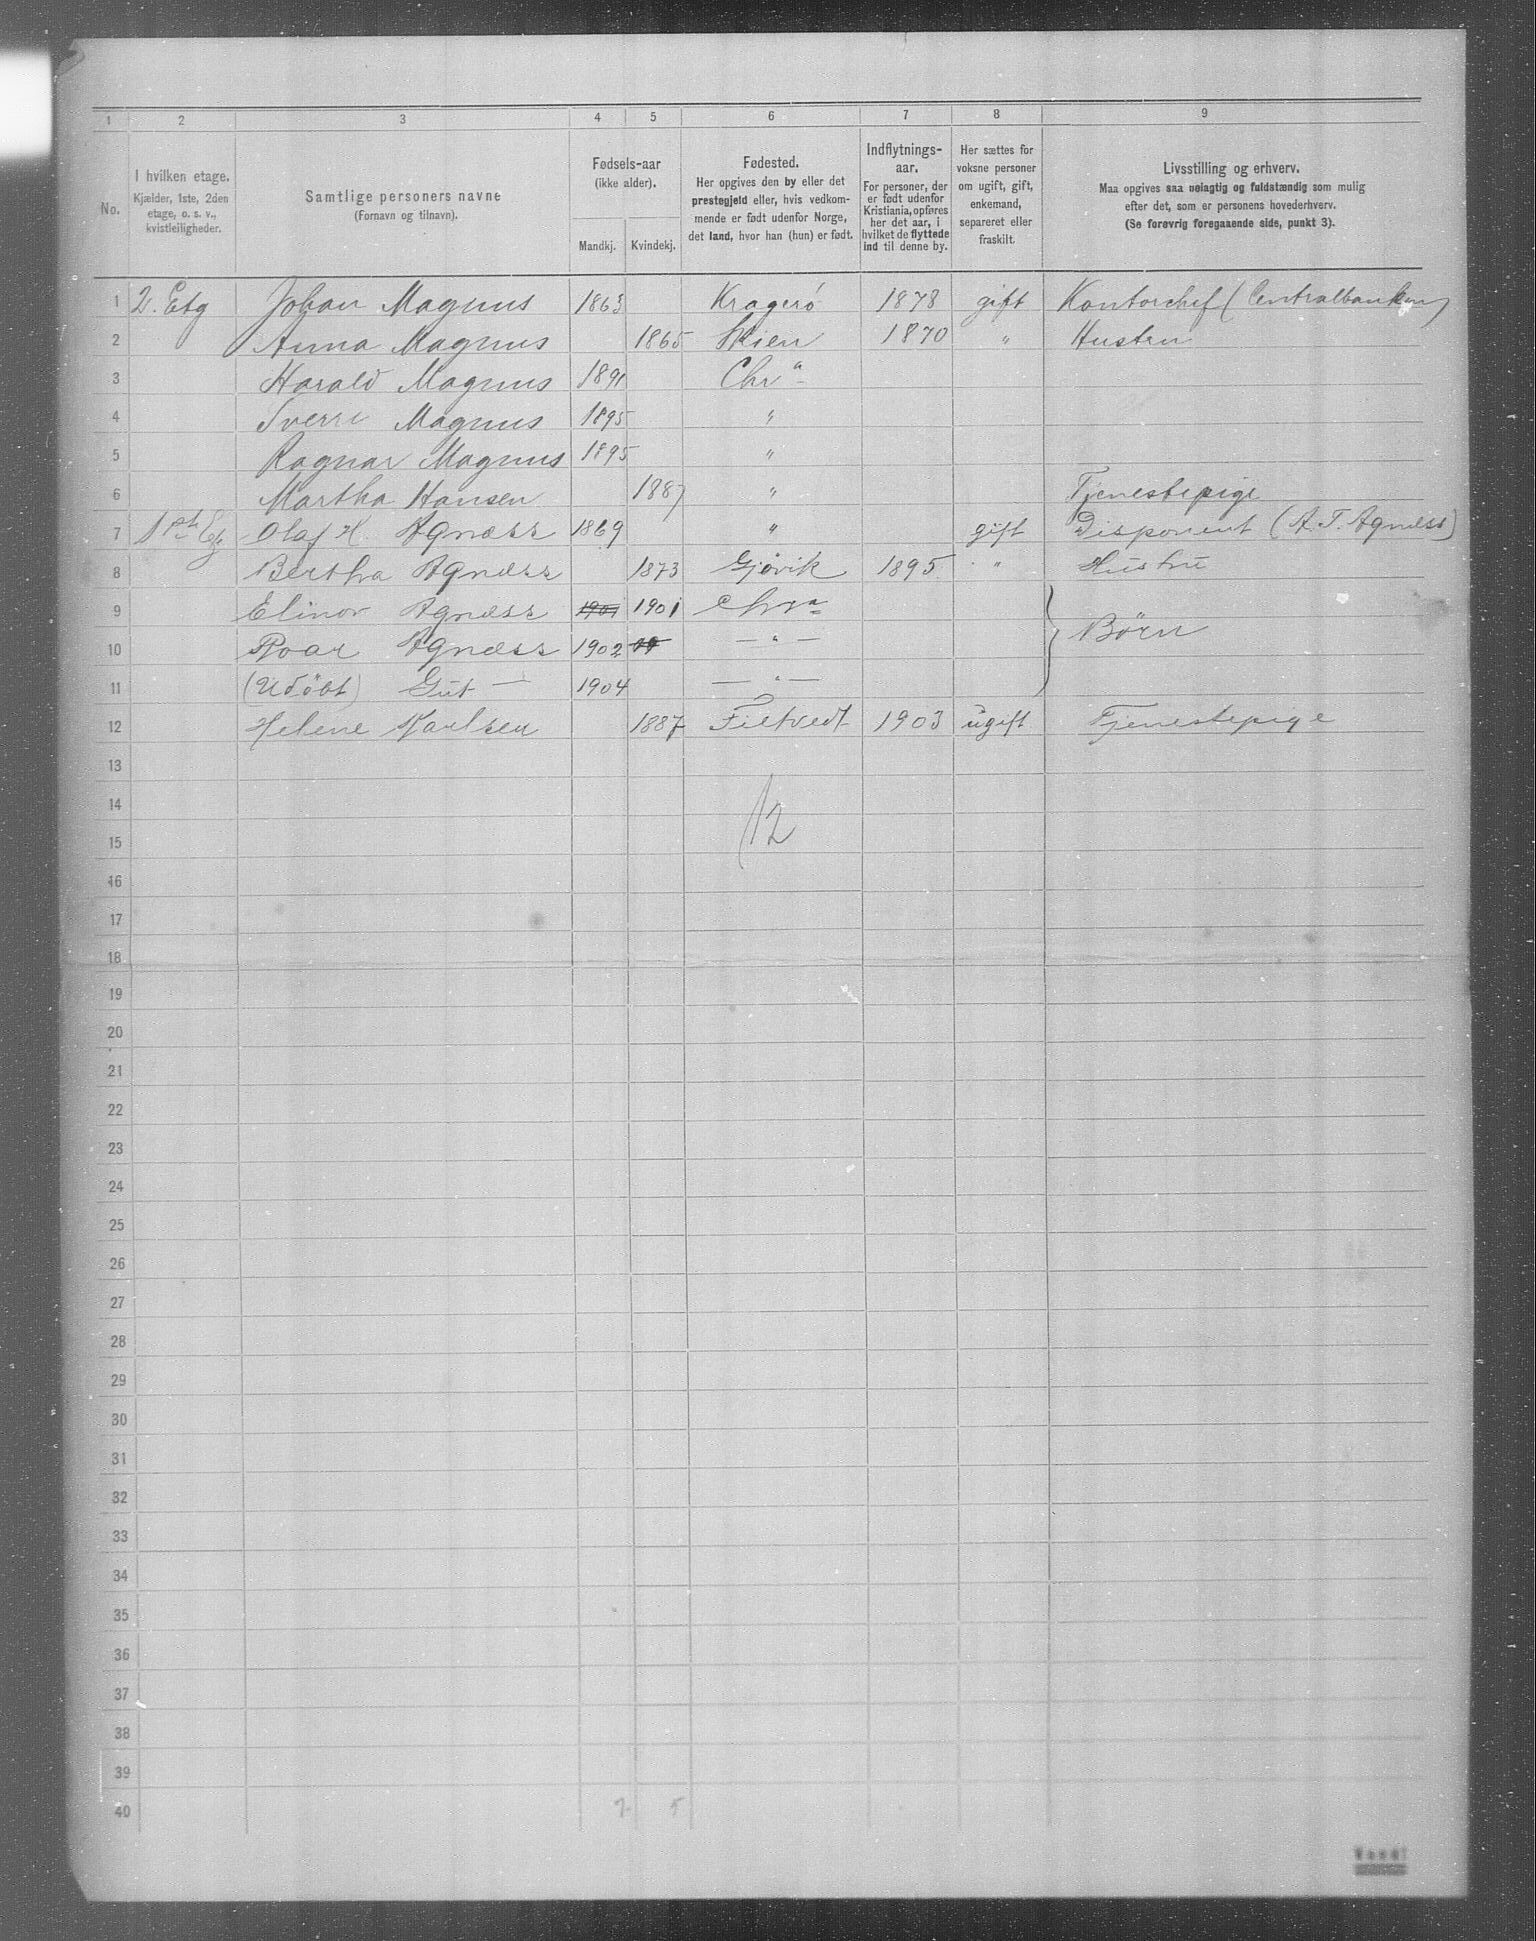 1 2 3 4 5 6 7 8 9
No.
I hvilken etage.
Kjælder, 1ste, 2den
etage, o. s. v.,
kvistleiligheder.
Samtlige personers navne
(Fornavn og tilnavn).
Fødsels-aar
(ikke alder).
Mandkj. Kvindekj.
Fødested.
Her opgives den by eller det
prestegjeld eller, hvis vedkom-
mende er født udenfor Norge,
det land, hvor han (hun) er født.
Indflytnings-
aar.
For personer, der
er født udenfor
Kristiania, opføres
her det aar, i
hvilket de flyttede
ind til denne by.
Her sættes for
voksne personer
om ugift, gift,
enkemand,
separeret eller
fraskilt.
Livsstilling og erhverv.
Maa opgives saa nøiagtig og fuldstændig som mulig
efter det, som er personens hovederhverv.
(Se forøvrig foregaaende side, punkt 3).
1 2. Etg Johan Magnus 1863 Kragerø 1878 gift Kontorchef (Centralbanken)
2 Anna Magnus 1865 Skien 1870 " Hustru
3 Harald Magnus 1891 Chr a
4 Sverre Magnus 1895 "
5 Ragnar Magnus 1895 "
6 Martha Hansen 1887 " Tjenestepige
7 1ste Eg Olaf H. Agnæss 1869 " gift Disponent (A. T. Agnæss)
8 Bertha Agnæss 1873 Gjøvik 1895 " Hustru
9 Elinor Agnæss 1901 1901 Chra
10 Roar Agnæss 1902 19 — " — Børn
11 (Udöbt) Gut — 1904 — " —
12 Helene Karlsen 1887 Filtvedt 1903 ugift Tjenestepige
13
14
12
15
16
17
18
19
20
21
22
23
24
25
26
27
28
29
30
31
32
33
34
35
36
37
38
39
40 7 5